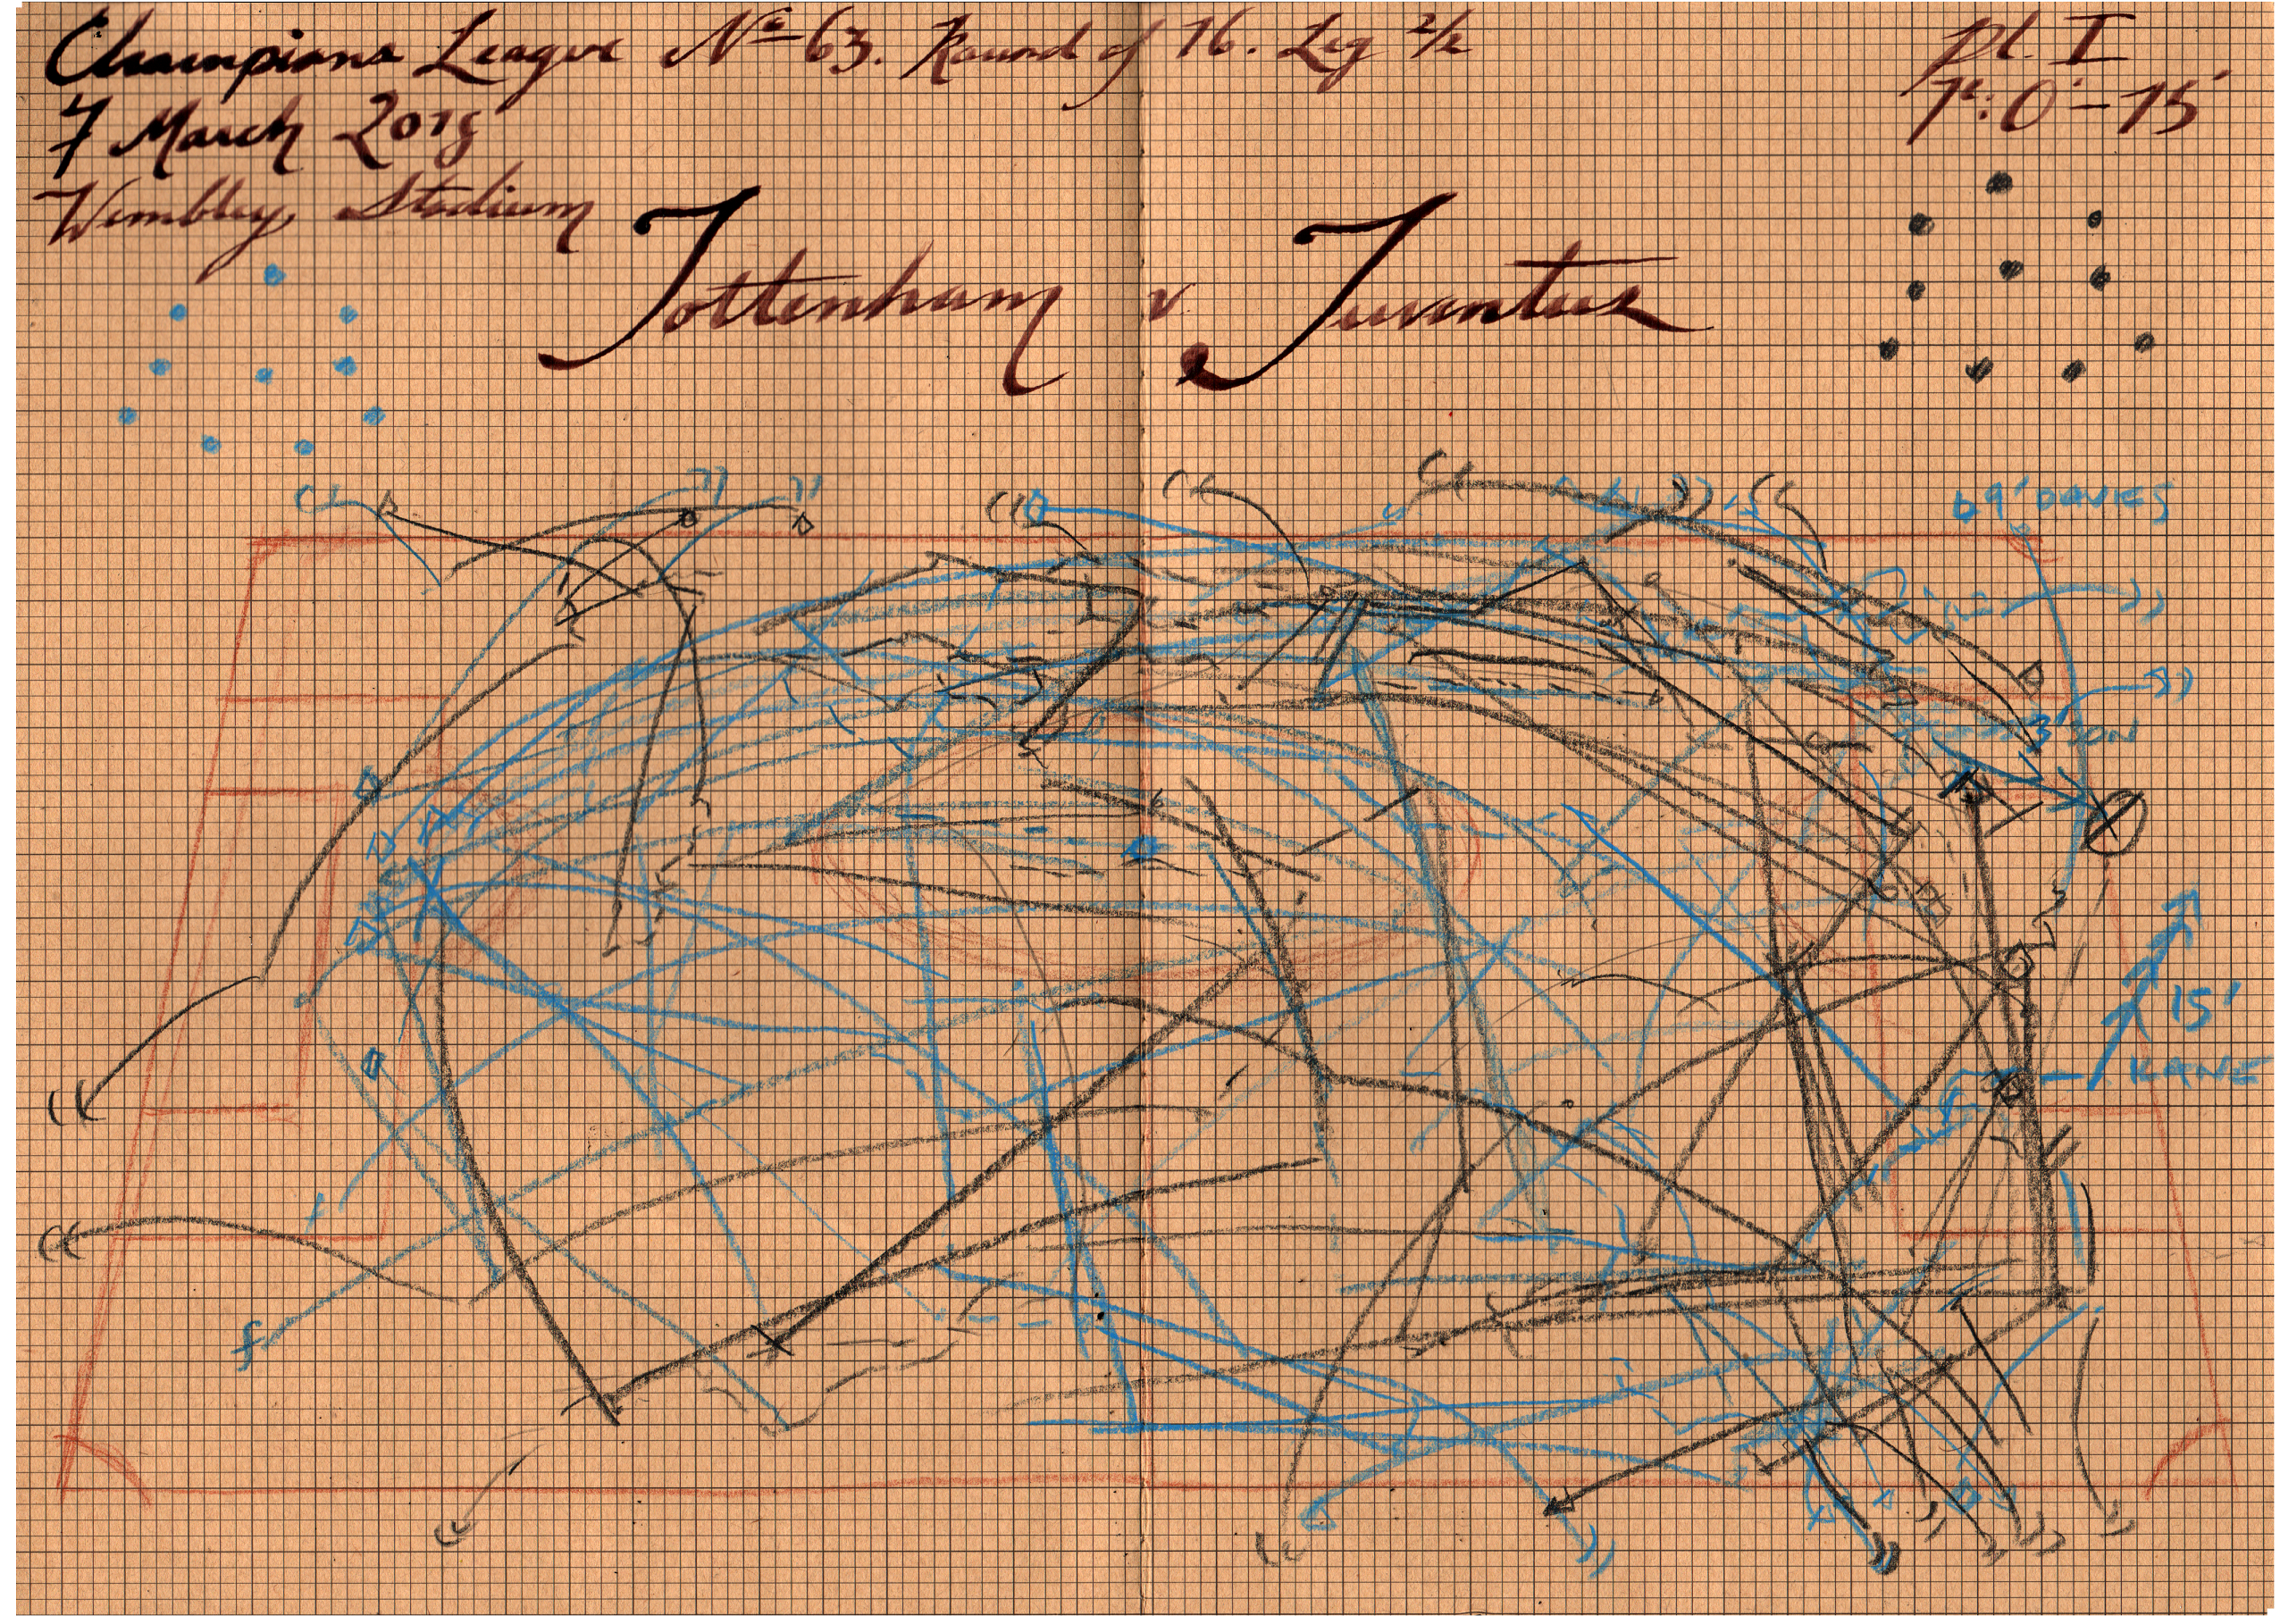 Champions League Nº 63. Round of 16. Leg 2/2
7 March 2018
Wembley Stadium
Pl. I
1º: 0'-15'
Tottenham v. Juventus
9' DAVIES
3' SON
15'
KANE